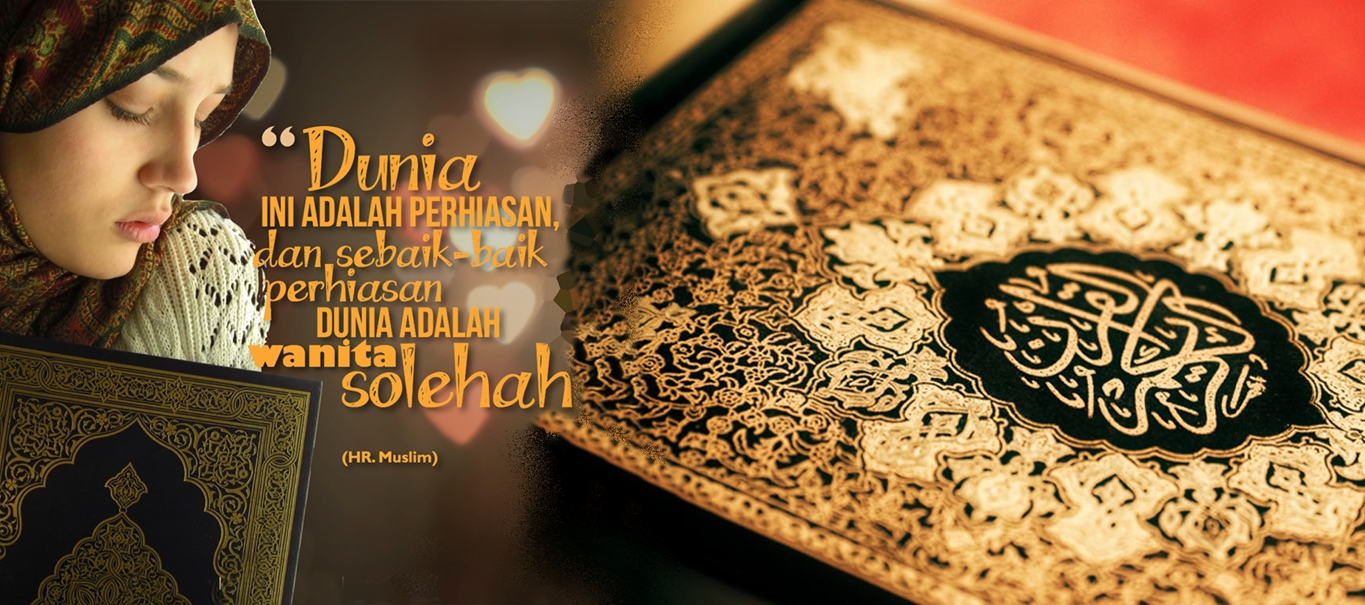 “Dunia
INI ADALAH PERHIASAN,
dan sebaik-baik
perhiasan
DUNIA ADALAH
wanita
solehah
(HR. Muslim)
القرآن الكريم